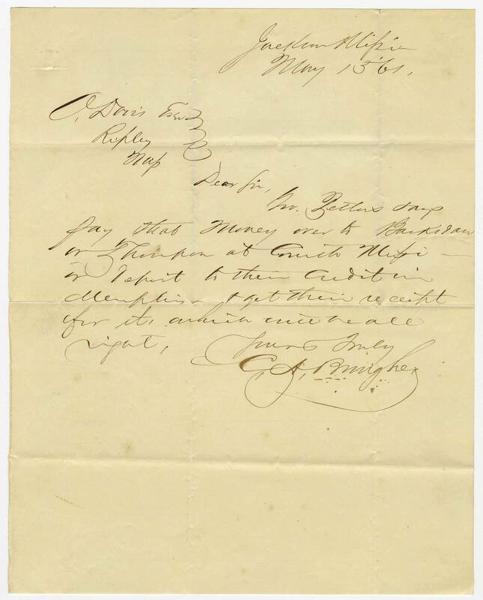 Jackson Missi
May 15 '61.
O. Davis Esq
Ripley
Miss
Dear Sir,
Gov. Pettus says
pay that Money over to Barksdale
or Thompson at Corinth Missi —
or Deposit to their Credit in
Memphis & get their receipt
for it, which will be all
right,
Yours Truly
C. A. Brougher